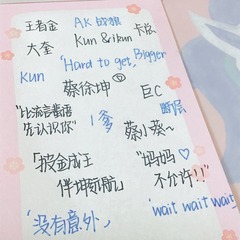 王者金 AK 战狼 卡总
大奎 Kun & ikun
kun "Hard to get, Bigger
蔡徐坤 巨C
"比流言蜚语 先认识你" 1爹 断层
蔡小葵~
「披金成王 "妈妈♡
伴坤远航」 不允许!!"
「没有意外」 'wait wait wait